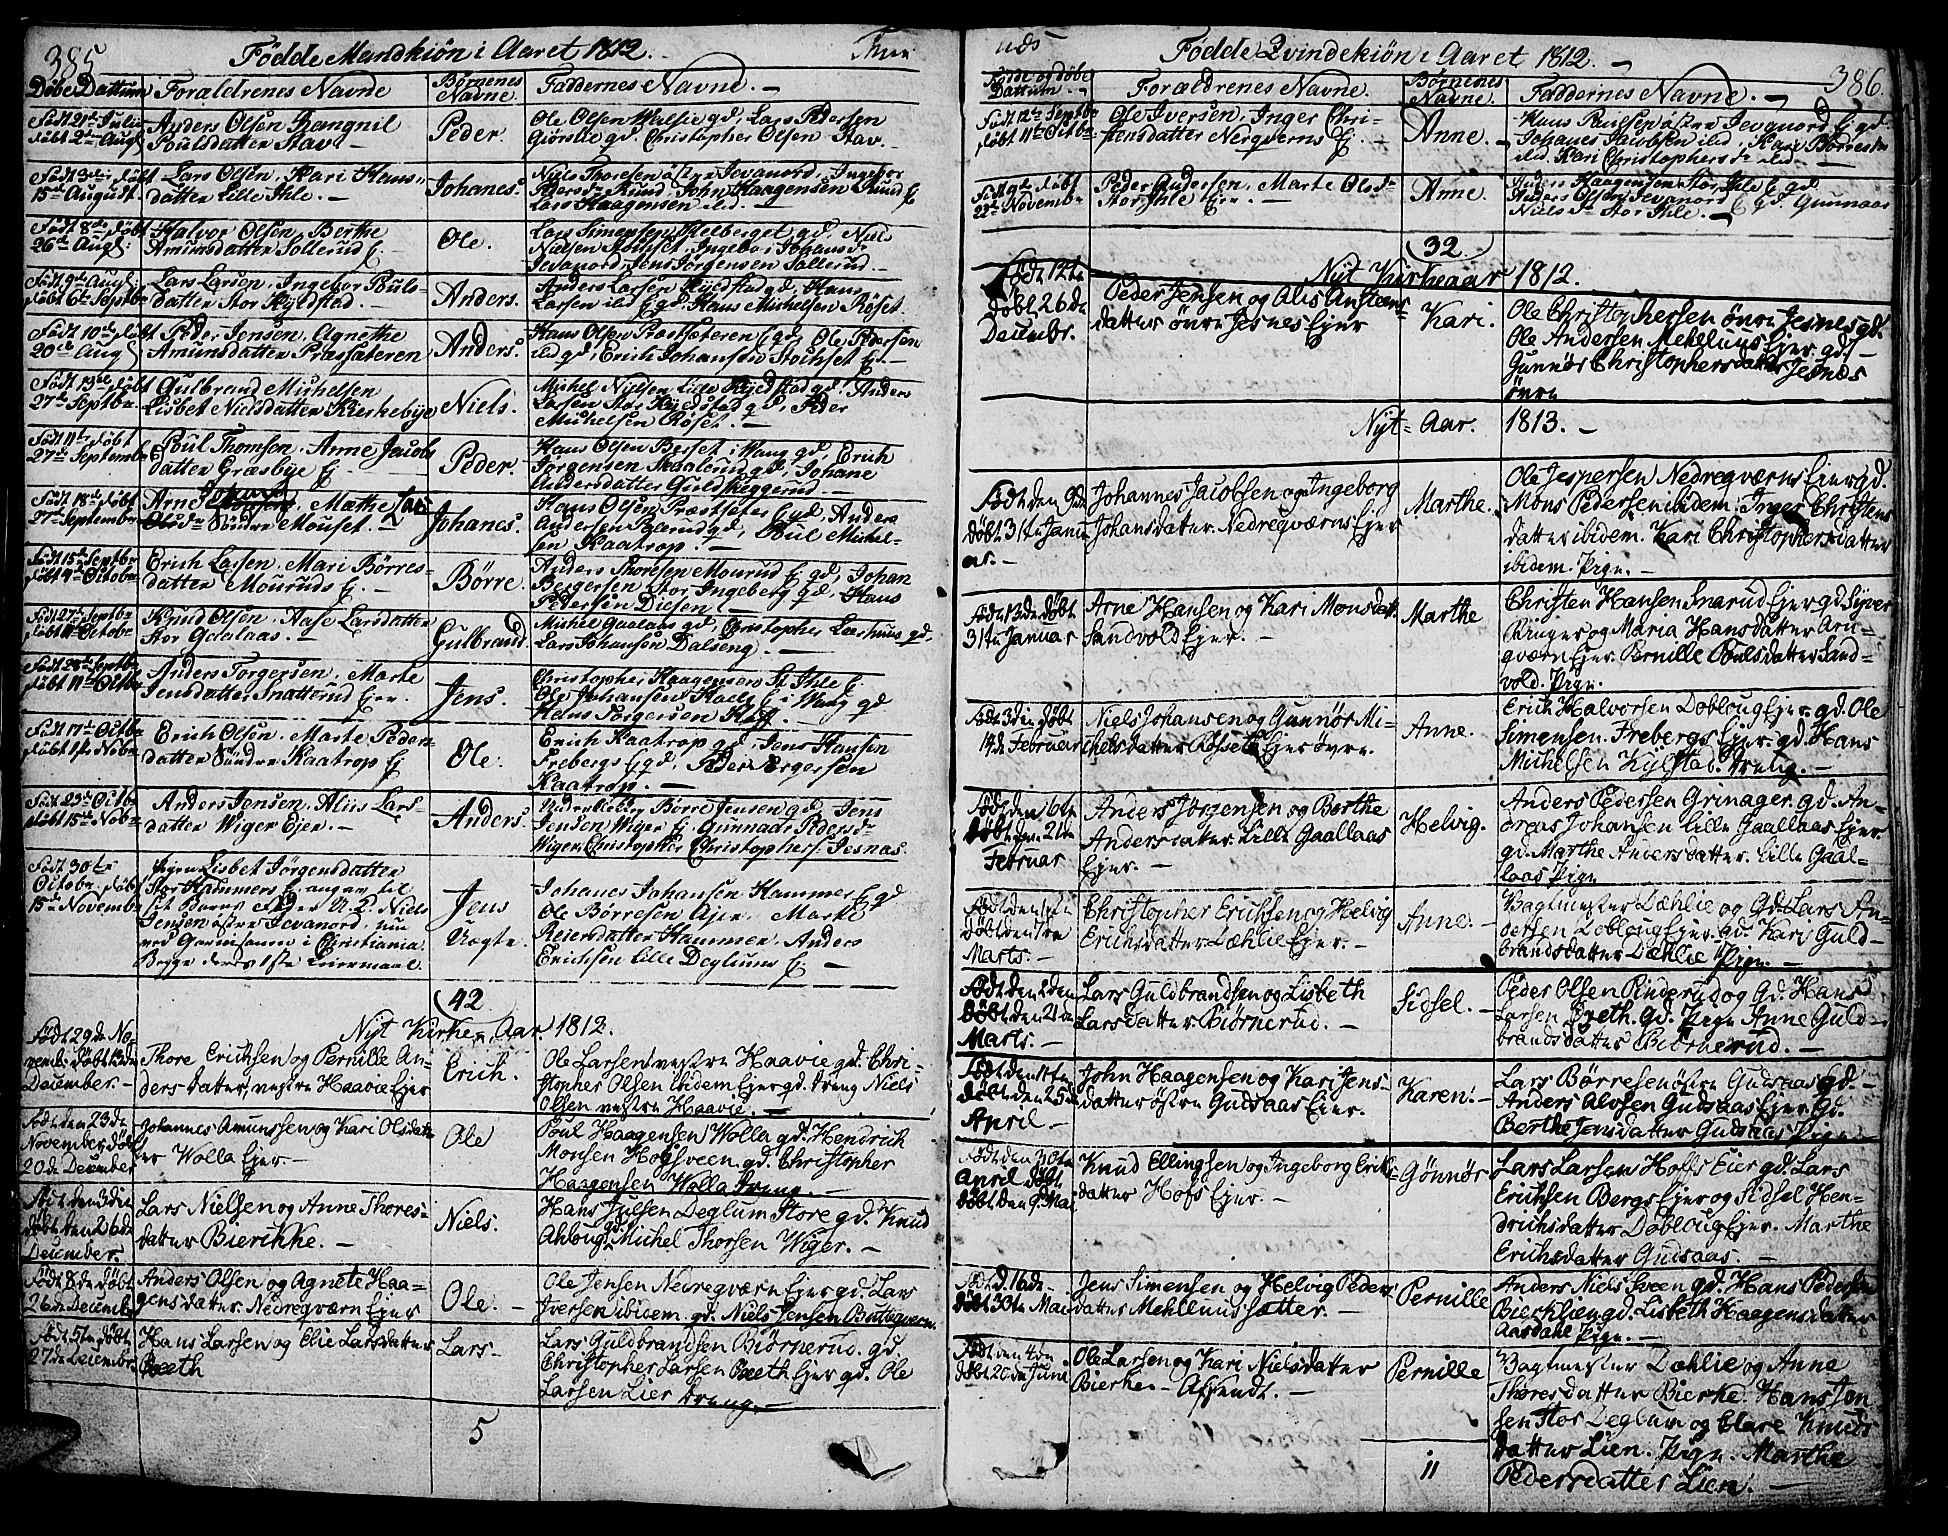 385 Fødde Mandkiøn i Aaret 1812.
Døbe Dattum Forældrenes Navne Børnenes Navne. Faddernes Navne. —
Født 21de Julii døbt 2den Aug
Anders Olsen
Poulsdatter Stav. —
Peder
Ole Olsen gd, Lars Pedersen
gd. Christopher Olsen Stav. —
Født 3de døbt
15de August.
Lars Olsen, Kari Hans-
datter Lille Ihle. —
Johanes.
Niels Thoresen østre Jevanord, Ingebor
Pedersdr Rund John Haagensen Rund E
Lars Haagensen ibid. —
Født 8de døbt
26de Aug:
Halvor Olsen Berthe
Amunsdatter Sollerud E
Ole.
Lars Simensen gd, Niels
Nielsen, Ingebor Johansdr
Jevanord, Jens Jørgensen Sollerud. —
Født 9de Aug
døbt 6te Septbr
Lars Larsen, Ingebor Pouls-
datter Stor Kyldstad. —
Anders.
Anders Larsen Kyldstad gd, Hans
Larsen ibid E gd, Hans Michelsen Røset.
Født 10de døbt
20de Aug
Peder Jensen, Agnethe
Amunsdatter Præstsæteren
Anders.
Hans Olsen Præstsæteren E gd, Ole Pedersen
ibid gd, Erich Johansen Stochset E. —
Født 13de døbt
27de Septbr
Gulbrand Michelsen
Lisbet Nielsdatter Kierkebye
Niels.
Michel Nielsen Lille Kyldstad gd, Anders
Larsen Stor Kyldstad gd, Peder
Michelsen Røset. —
Født 11te døbt
27de Septembr
Poul Thomsen, Anne Jacobs
datter Græsbye E
Peder.
Hans Olsen Berset i Wang gd, Erich
Jørgensen Skaalerud gd, Johane
Andersdatter —
Født 18de døbt
27de September
Arne Johans, Mathe
Søndre Mouset. —
Johanes.
Hans Olsen Præstsæter E gd, Anders
Andersen gd, Poul Michel-
sen Kaatrop. —
Født 15de Septbr
døbt 4de Octobr
Erich Larsen, Mari Børres-
datter Mouruds E. —
Børre.
Anders Thoresen Mourud E gd, Johan
Bergersen Stor Ingeberg gd, Hans
Pedersen Diesen. —
Født 27de Septbr
døbt 11te Octobr
Knud Olsen, Aase Larsdatter
Stor Gaalaas. —
Gulbrand.
Michel Gaalaas gd, Christopher gd,
Lars Johansen Dalseng. —
Født 28de Septbr
døbt 11te Octbr
Anders Torgersen, Marte
Jensdatter Snattsrud Ejer. —
Jens.
Christopher Haagensen St Ihle E.
Ole Johansen E i Wang gd
Hans Torgersen. —
Født 17de Octbr
døbt 1st Novbr
Erich Olsen, Marte Peders-
datter Søndre Kaatrop E
Ole.
Erich Kaatrop gd, Jens Hansen
Frebergs E gd, Peder Ergersen
Kaatrop. —
Født 23de Octbr
døbt 15de Novbr
Anders Jensen, Aliis Lars-
datter Wiger Ejer. —
Anders.
Børre Jensen gd, Jens
Jensen Wiger E, Gunnaar Pedersdr
Wiger, Christopher Christophers. Jesnæs.
Født 30te
Octobr, døbt
15de Novembr
Pigen Lisbet Jørgensdatter
Stor Hammers E. angav til
sit Barns Fader U. K. Niels
Jensen østre Jevanord, nu
ved Garnisonen i Christiania.
Begge deres 1ste Leiermaal.
Jens
Uægte.
Johanes Johansen Hammer E gd
Ole Børresen Ajer, Marte
Reiersdatter Hammer, Anders
Erichsen Lille Deglums E: —
42
Nyt Kirke-Aar 1812.
Født 29de No-
vembr: døbt 13de
December. —
Thore Erichsen og Pernille An-
dersdatter, vestre Haavie Ejer
Erich.
Ole Larsen vestre Haavie gd. Chri-
stopher Olsen ibidem Ejer gd. Dreng Niels
Olsen vestre Haavie. —
Født den 23de
November, døbt
20de December
Johannes Amunssen og Kari Olsdat-
ter Wolla Ejer. —
Ole
Poul Haagensen Wolla gd. Hendrich
Monsen Hogsveen gd. Christopher
Haagensen Wolla Dreng. —
Født den 3die
døbt den 26de
December.
Lars Nielsen og Anne Thores-
datter Bierkke. —
Niels.
Hans Juelsen Deglum Store gd. Knud
Ahloug gd. Michel Thorsen Wiger. —
Født 8de døbt
26de December
Anders Olsen og Agnete Haa-
gensdatter Nedreqværn Ejer
Ole. —
Ole Jensen Nedreqværn Ejer gd. Lars
Iversen ibidem gd. Niels Jensen Butteqvern.
Født 5te døbt
27de Decembr
Hans Larsen og Elie Larsdatter
Breeth
Lars —
Lars Guldbrandsen Biørnerud. gd.
Christopher Larsen Breeth Ejer gd. Ole
Larsen Lier Dreng. —
5
Fødde Qvindekiøn i Aaret 1812. —
386.
Fødde og døbe Dattum. — Forældrenes Navne. Børnenes Navne. Faddernes Navne. —
Født 12te Septbr
døbt 11te Octbr
Ole Iversen, Inger Chri-
stensdatter Nerqverns E. —
Anne. —
Hans Poulsen østre Jevanord E gd
Johanes Jacobsen ibid, Kari Børresdr
ibid Kari Christophersdr ibid. —
Født 9de døbt
22de Novembr
Peder Andersen, Marte Olsdr
Stor Ihle Ejer. —
Anne.
Anders Haagensen Stor Ihle E gd
Anders Olsen Jevanord E gd, Gunnaar
Nielsdr Stor Ihle. —
32
Nyt Kirkeaar 1812.
Født 12te
døbt 26de
Decembr.
Peder Jensen og Alis Anstens-
datter øvre Jesnes Ejer
Kari.
Ole Christophersen øvre Jesnes gd.
Ole Andersen Mehlums Ejer gd. —
Gunnør Christophersdatter Jesnæs
øvre
Nyt-Aar. 1813. —
Født den 9de
døbt 31te Janu
ar. —
Johannes Jacobsen og Ingeborg
Johansdatter Nedreqværns Ejer
Marthe.
Ole Jespersen Nedreqværns Ejer gd.
Mons Pedersen ibidem. Inger Christens
datter ibidem. Kari Christophersdatter
ibidem. Pige. —
Født 13de døbt
31te Januar
Arne Hansen og Kari Monsdatt
Sandvold Ejer. —
Marthe
Christen Hansen Snarud Ejer gd Syver
Ringer og Maria Hansdatter Aru-
qværn Ejer. Pernille Poulsdatter Sand-
vold. Pige.
Født 3die døbt
14de Februar
Niels Johansen og Gunnør Mi-
chelsdatter Røsets Ejer øvre.
Anne.
Erich Halvorsen Dobloug Ejer gd. Ole
Simensen Frebergs Ejer gd. Hans
Michelsen Kylstad. Dreng.
Født den 6te
døbt den 21de
Februar
Anders Jørgensen og Berthe
Andersdatter Lille Gaallaas
Ejer. —
Helvig.
Anders Pedersen Grinager gd. An-
dreas Johansen Lille Gaallaas Ejer
gd. Marthe Andersdatter Lille Gaal-
laas Pige
Født den 1ste
døbt den
Marts. —
Christopher Erichsen og Helvig
Erichsdatter Dæhlie Ejer. —
Anne. —
Vagtmester Dæhlie og Gd. Lars An-
dersen Dobloug Ejer gd. Kari Guld-
brandsdatter Dæhlie Pige. —
Født den 2den
døbt den 21de
Marts. —
Lars Guldbrandsen og Lisbeth
Larsdatter Biørnerud. —
Sidsel. —
Peder Olsen Rinderud og Gd. Hans
Larsen Breth. gd. Pige Anne Guld-
brandsdatter Biørnerud. —
Født den 1ste
døbt den 25de
April —
John Haagensen og Kari Jens-
datter østre Gudsaas Ejer.
Karen. —
Lars Børresen østre Gudsaas gd. —
Anders Alvsen Gudsaas Ejer gd.
Berthe Jonsdatter Gudsaas Pige
Født den 30te
April døbt
døbt den 9de Mai
Knud Ellingsen og Ingeborg Erichs-
datter Hofs Ejer. —
Gønnør
Lars Larsen Hoffs Eier gd. Lars
Erichsen Bergs Ejer og Sidsel Hen-
drichsdatter Dobloug Ejer. Marthe
Erichsdatter Gudsaas. —
Født d. 16de
døbt 30te Mai
Jens Simensen og Helvig Peders-
datter Mehlumssætter. —
Pernille
Anders Niels Sveen gd. Hans Pedersen
gd. Lisbeth Haagensdatter
Aasdahl Pige. —
Født den 4de
døbt 20de Juni
Ole Larsen og Kari Nielsdatter
Bierke. — Affendt. —
Pernille
Vagtmester Dæhlie og Anne
Thoresdatter Bierke. Hans Jon
sen Stor Deglum og Clare Knuds
datter Lien. Pige. Marthe
Pedersdatter Lien. —
11